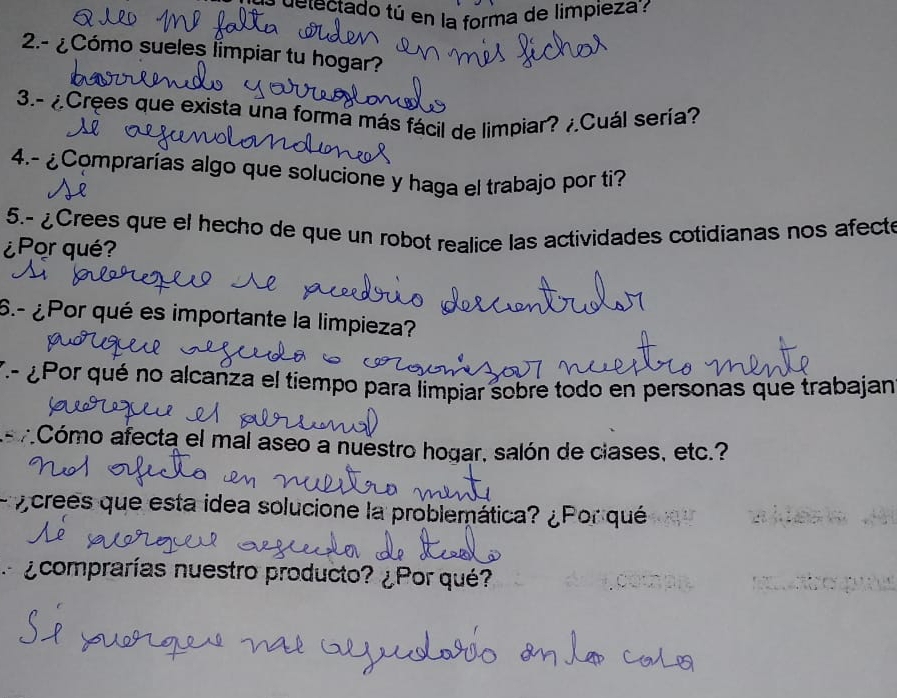 detectado tú en la forma de limpieza?
que me falta orden en mis fichas
2.- ¿Cómo sueles limpiar tu hogar?
barriendo y arreglando
3.- ¿Crees que exista una forma más fácil de limpiar? ¿Cuál sería?
se
4.- ¿Comprarías algo que solucione y haga el trabajo por ti?
se
5.- ¿Crees que el hecho de que un robot realice las actividades cotidianas nos afecte
¿Por qué?
si porque se puedrio descontrolar
6.- ¿Por qué es importante la limpieza?
porque aeguda o corgonisar nuestro mente
.- ¿Por qué no alcanza el tiempo para limpiar sobre todo en personas que trabajan
porque el
.- ¿Cómo afecta el mal aseo a nuestro hogar, salón de clases, etc.?
nos afecta en nuestro mente
- ¿crees que esta idea solucione la problemática? ¿Por qué
se porque aeguda de todo
.- ¿comprarías nuestro producto? ¿Por qué?
Si porque me aegudario en la casa